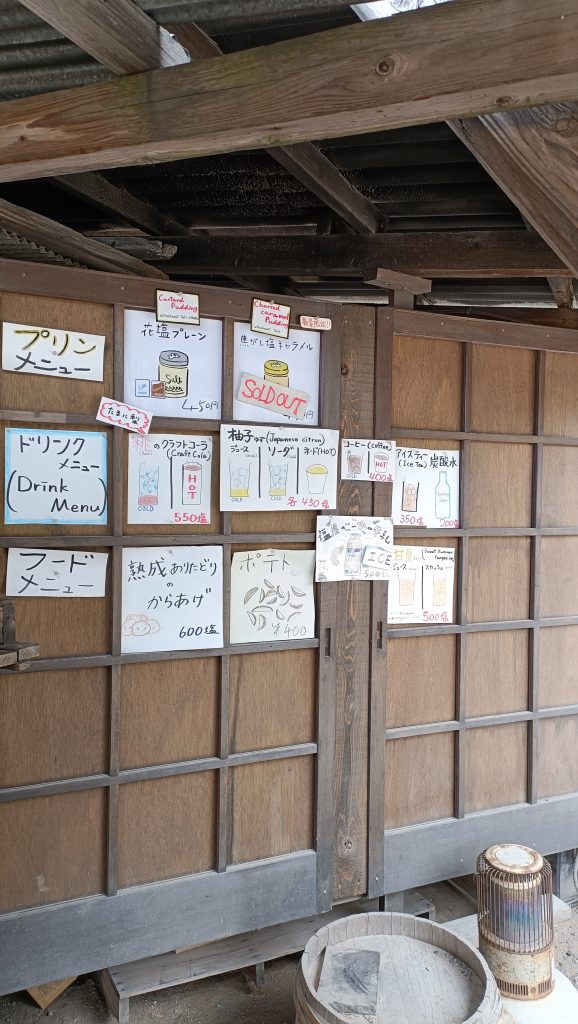 プリン
メニュー
Custard
Pudding
花塩プレーン
Salt
450円
Charred
caramel
Pudding
数量限定!!
焦がし塩キャラメル
SOLD OUT
円
ドリンク
メニュー
(Drink
Menu)
たまに梨
桃のクラフトコーラ
(Craft Cola)
COLD
HOT
550塩
柚子ゆず(Japanese citron)
ジュース
ソーダ
ホット(HOT)
COLD
COLD
各450塩
コーヒー(coffee)
COLD
HOT
400塩
アイスティー
(Ice Tea)
350塩
炭酸水
200塩
ICE
甘夏
Sweet Summer
ジュース
スカッシュ
500塩
フード
メニュー
熟成ありたどり
の
からあげ
600塩
ポテト
¥400